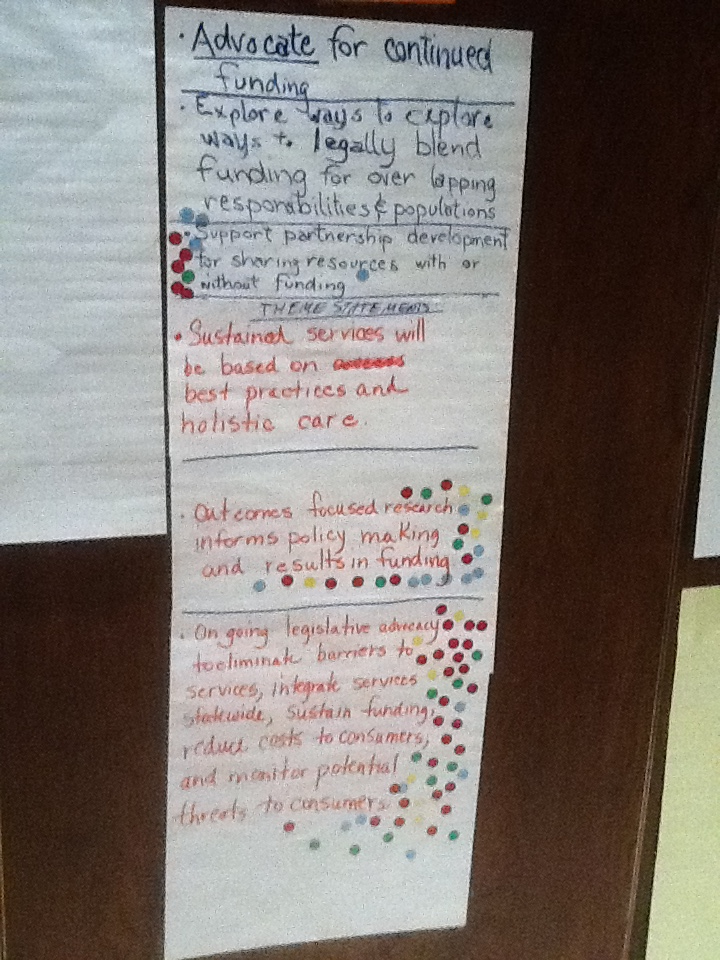 · Advocate for continued
funding
· Explore ways to explore
ways to legally blend
funding for over lapping
responsibilities & populations
· Support partnership development
for sharing resources with or
without funding
THEME STATEMENTS
· Sustained services will
be based on
best practices and
holistic care.
· Outcomes focused research
informs policy making
and results in funding
· On going legislative advocacy
to eliminate barriers to
services, integrate services
statewide, sustain funding,
reduce costs to consumers,
and monitor potential
threats to consumers